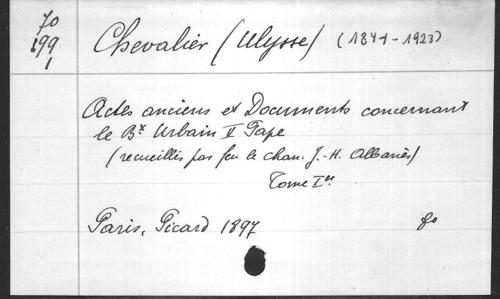 fo
199
1
Chevalier (Ulysse) (1841-1923)
Actes anciens et Documents concernant
le Bx Urbain V Pape
(recueillis par feu le chan. J.-H. Albanès)
Tome Ier
Paris, Picard 1897 fo